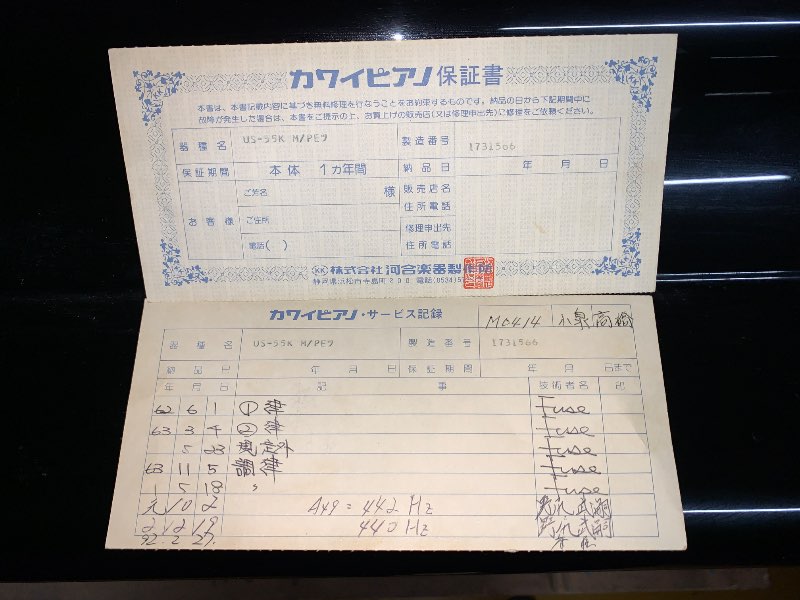 カワイピアノ 保証書
本書は、本書記載内容に基づき無料修理を行なうことをお約束するものです。納品の日から下記期間中に
故障が発生した場合は、本書をご提示の上、お買上げの販売店(又は修理申出先)に修理をご依頼ください。
器種名 US-55K M/PEウ 製造番号 1731566
保証期間 本体 1カ年間 納品日 年 月 日
お客様 ご芳名 様 販売店名
住所電話
ご住所
修理申出先
電話( ) 住所電話
株式会社 河合楽器製作所
静岡県浜松市寺島町200 電話(0534)
カワイピアノ・サービス記録 MC414 小泉 高橋
器種名 US-55K M/PEウ 製造番号 1731566
納品日 年 月 日 保証期間 年 月 日まで
年 月 日 記 事 技術者名 印
62 6 1 ① 律 Fuse
63 3 4 ② 律 Fuse
規定外 Fuse
63 11 5 調律 Fuse
1 5 〃 Fuse
元 10 2 A49=442Hz
2 12 19 440Hz
92. 2 27.